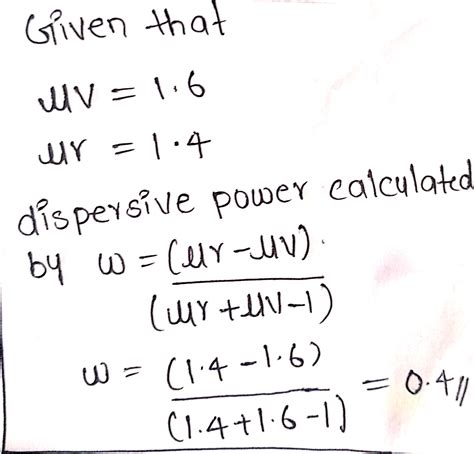 Given that
μv = 1.6
μr = 1.4
dispersive power calculated
by ω = (μr - μv).
(μr + μv - 1)
ω = (1.4 - 1.6)
(1.4 + 1.6 - 1) = 0.4//